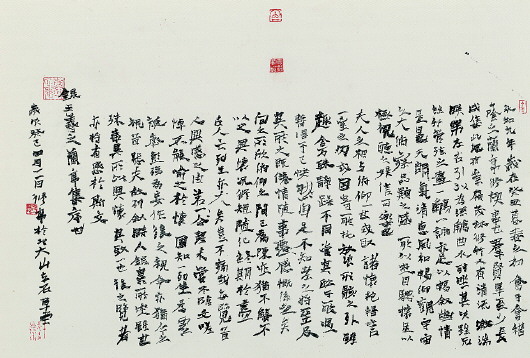 永和九年歲在癸丑暮春之初會于會稽
山陰之蘭亭修禊事也羣賢畢至少長
咸集此地有崇山峻領茂林修竹又有清流激湍
映帶左右引以為流觴曲水列坐其次雖無
絲竹管弦之盛一觴一詠亦足以暢叙幽情
是日也天朗氣清惠風和暢仰觀宇宙
之大俯察品類之盛所以遊目騁懷足以
極視聽之娛信可樂也
夫人之相與俯仰一世或取諸懷抱悟言
一室之內或因寄所託放浪形骸之外雖
趣舍萬殊靜躁不同當其欣於所遇
暫得於己快然自足不知老之將至及
其所之既倦情隨事遷感慨係之矣
向之所欣俯仰之間已為陳迹猶不能不
以之興懷況修短隨化終期於盡
古人云死生亦大矣豈不痛哉每覽昔
人興感之由若合一契未嘗不臨文嗟
悼不能喻之於懷固知一死生為虛
誕齊彭殤為妄作後之視今亦猶今之
視昔悲夫故列叙時人錄其所述雖世
殊事異所以興懷其致一也後之覽者
亦將有感於斯文
錄王羲之蘭亭集序也
歲次癸巳四月一日於北大山左右草堂